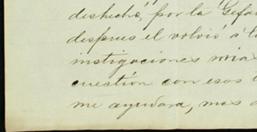 deshecho, por la Gefa
despues el volvió á l
instigaciones mia
cuestión con esos
me ayudara, mas